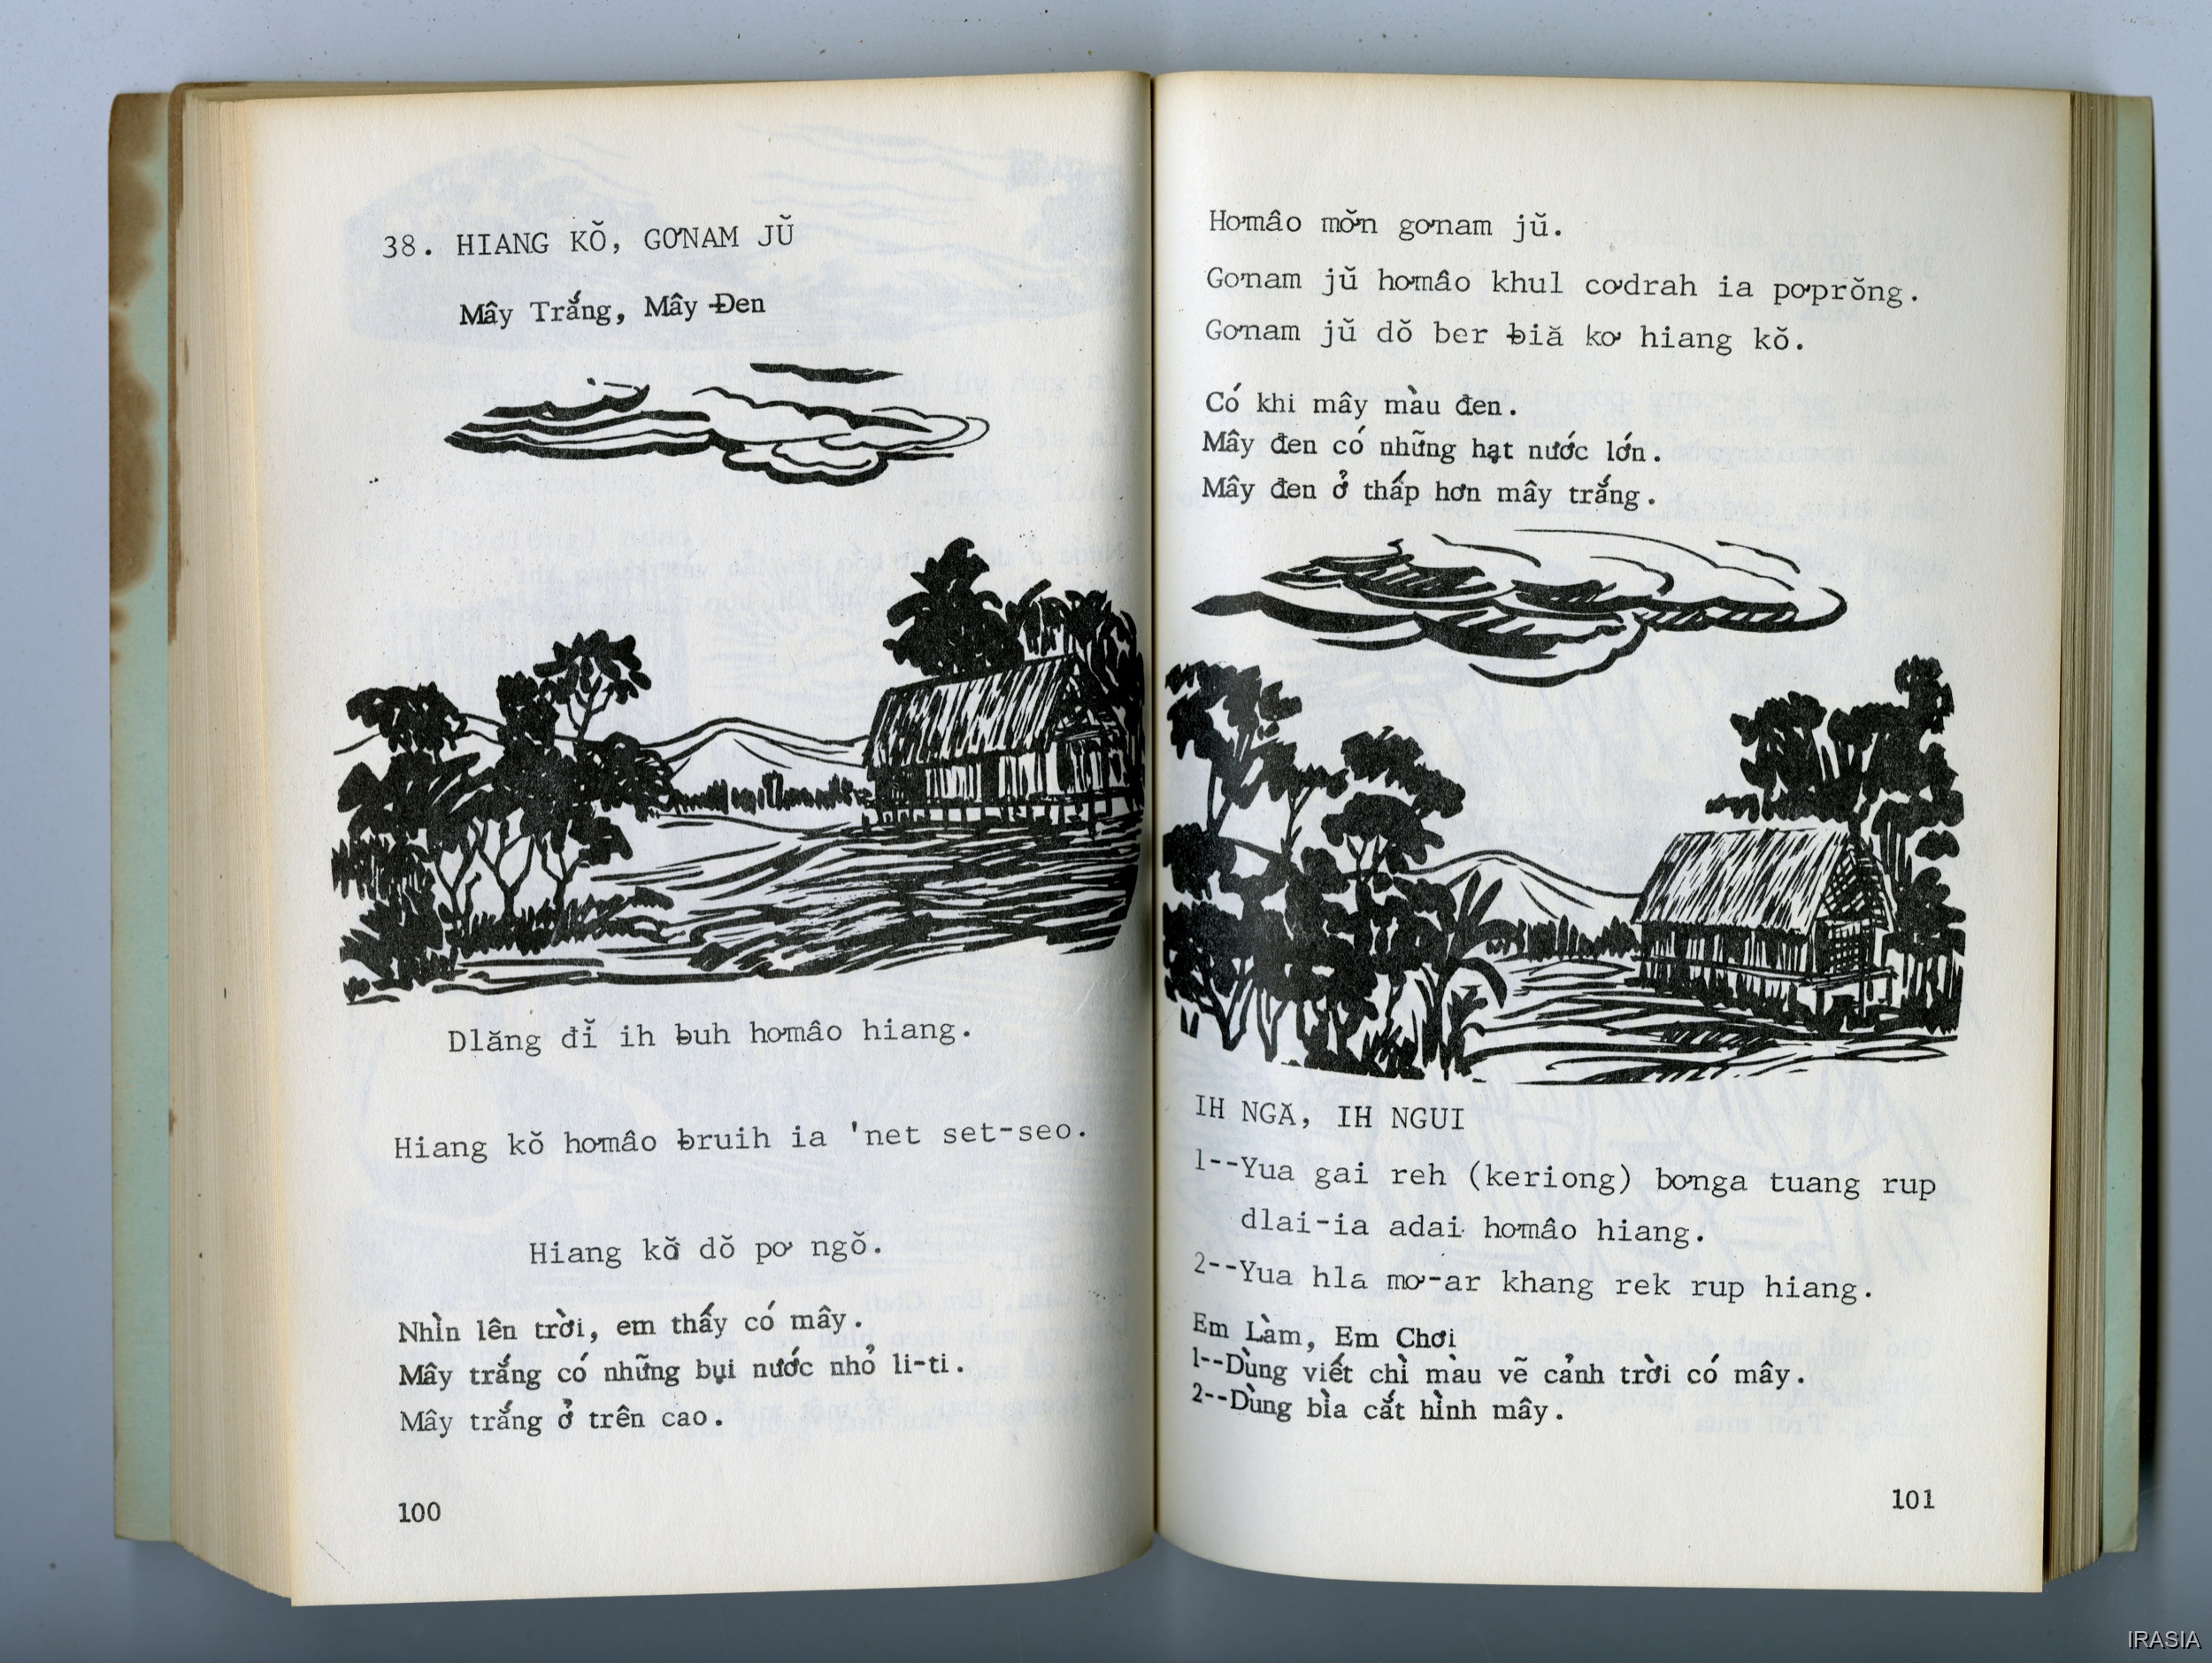 38. HIANG KŎ, GƠNAM JŬ
Mây Trắng, Mây Đen
Dlăng đĭ ih ƀuh hơmâo hiang.
Hiang kŏ hơmâo ƀruih ia 'net set-seo.
Hiang kŏ dŏ pơ ngŏ.
Nhìn lên trời, em thấy có mây.
Mây trắng có những bụi nước nhỏ li-ti.
Mây trắng ở trên cao.
100
Hơmâo mơ̆n gơnam jŭ.
Gơnam jŭ hơmâo khul cơdrah ia pơprŏng.
Gơnam jŭ dŏ ber ƀiă kơ hiang kŏ.
Có khi mây màu đen.
Mây đen có những hạt nước lớn.
Mây đen ở thấp hơn mây trắng.
IH NGĂ, IH NGUI
1--Yua gai reh (keriong) bơnga tuang rup
dlai-ia adai hơmâo hiang.
2--Yua hla mơ-ar khang rek rup hiang.
Em Làm, Em Chơi
1--Dùng viết chì màu vẽ cảnh trời có mây.
2--Dùng bìa cắt hình mây.
101
IRASIA